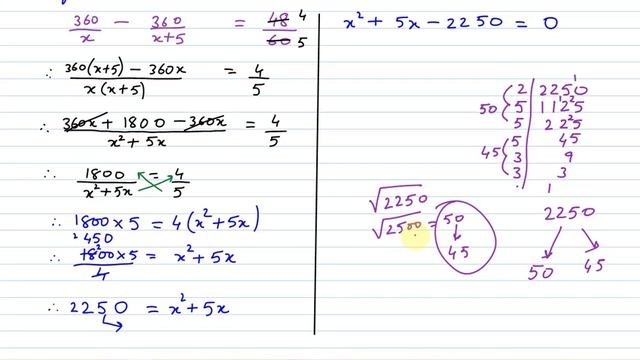 360/x - 360/(x+5) = 48/60 4/5
∴ (360(x+5) - 360x)/(x(x+5)) = 4/5
∴ (360x + 1800 - 360x)/(x² + 5x) = 4/5
∴ 1800/(x² + 5x) = 4/5
∴ 1800 × 5 = 4(x² + 5x)
² 450
∴ (1800 × 5)/4 = x² + 5x
∴ 2250 = x² + 5x
x² + 5x - 2250 = 0
2 | 2250
50 { 5 | 1125
5 | 225
5 | 45
45 { 3 | 9
3 | 3
1
√2250
√2500 = 50
45
2250
50 45